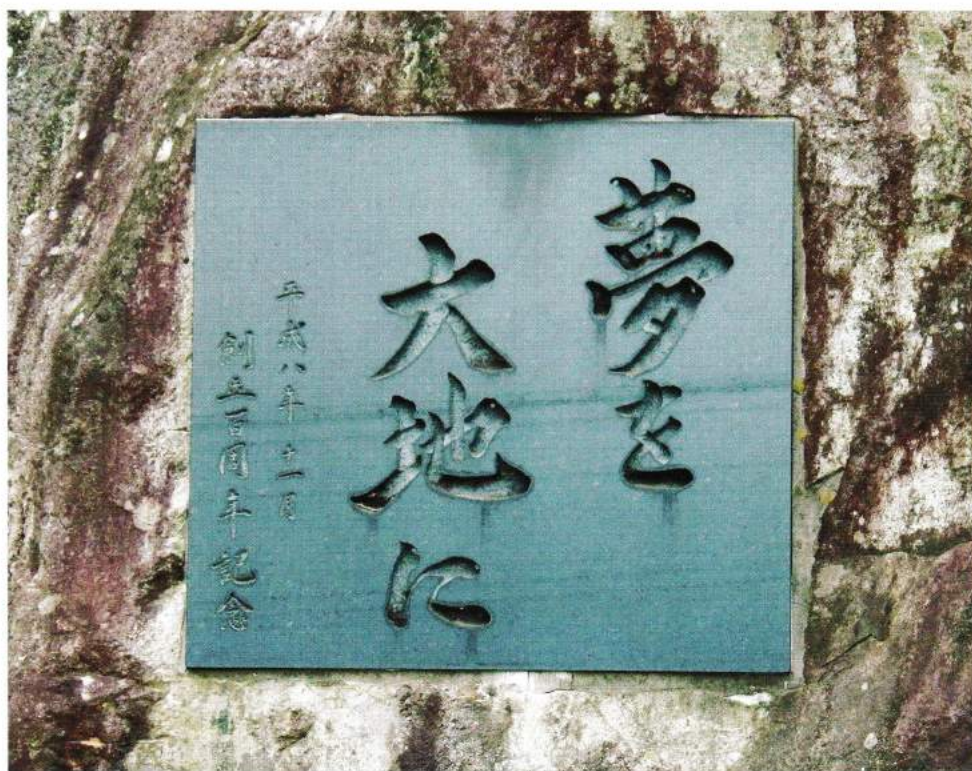 夢を
大地に
平成八年十一月
創立百周年記念